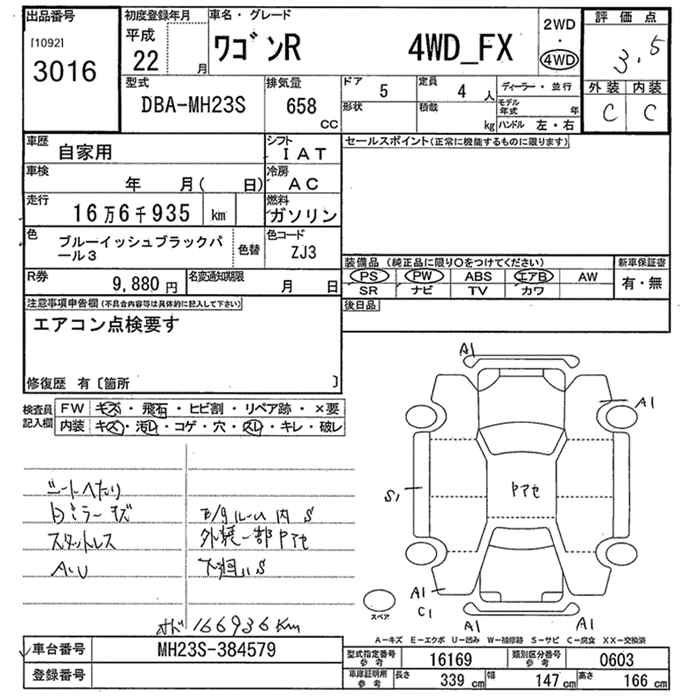 出品番号
[1092]
3016
初度登録年月
平成
22 月
車名・グレード
ワゴンR 4WD_FX
2WD
・
4WD
評価点
3.5
外装 内装
C C
型式
DBA-MH23S
排気量
658
cc
ドア 5
形状
定員 4 人
積載 kg
ディーラー・並行
モデル年式 年
ハンドル 左・右
車歴
自家用
シフト
IAT
車検
年 月( 日)
冷房
AC
走行
16万6千935 km
燃料
ガソリン
色
ブルーイッシュブラックパール3
色替
色コード
ZJ3
R券
9,880 円
名変通知期限
月 日
セールスポイント(正常に機能するものに限ります)
装備品 (純正品に限り○をつけてください)
PS PW ABS エアB AW
SR ナビ TV カワ
新車保証書
有・無
後日品
注意事項申告欄(不具合内容等は具体的に記入して下さい)
エアコン点検要す
修復歴 有〔箇所 〕
検査員記入欄
FW キズ・飛石・ヒビ割・リペア跡・×要
内装 キズ・汚れ・コゲ・穴・スレ・キレ・破レ
シートへたり
Dミラーキズ
スタットレス
B/gルーム内 S
外装一部Pアセ
下廻りS
メーター 166936Km
A1
A1
S1
Pアセ
A1
C1
A1
A1
スペア
A-キズ E-エクボ U-凹み W-補修跡 S-サビ C-腐食 XX-交換済
車台番号 MH23S-384579
登録番号
型式指定番号 参考 16169
類別区分番号 参考 0603
車庫証明所 参考 長さ 339 cm 幅 147 cm 高さ 166 cm